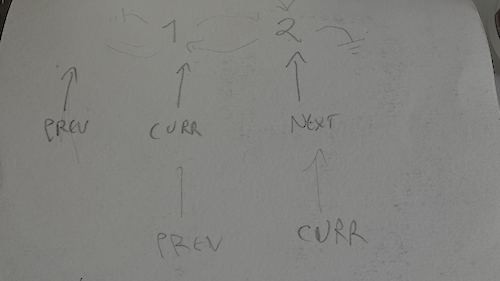 1 2
PREV CURR NEXT
PREV CURR